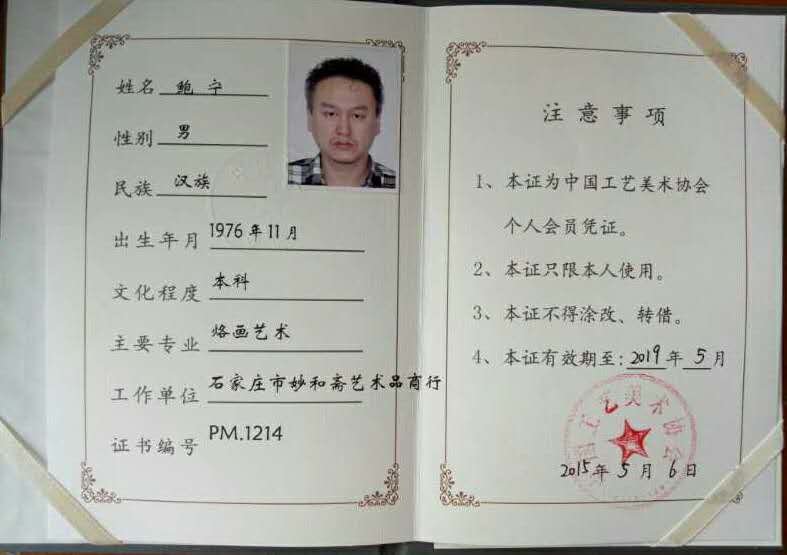 姓名 鲍宁
性别 男
民族 汉族
出生年月 1976年11月
文化程度 本科
主要专业 烙画艺术
工作单位 石家庄市妙和斋艺术品商行
证书编号 PM.1214
注意事项
1、本证为中国工艺美术协会
个人会员凭证。
2、本证只限本人使用。
3、本证不得涂改、转借。
4、本证有效期至:2019年5月
国工艺美术协会
2015年5月6日